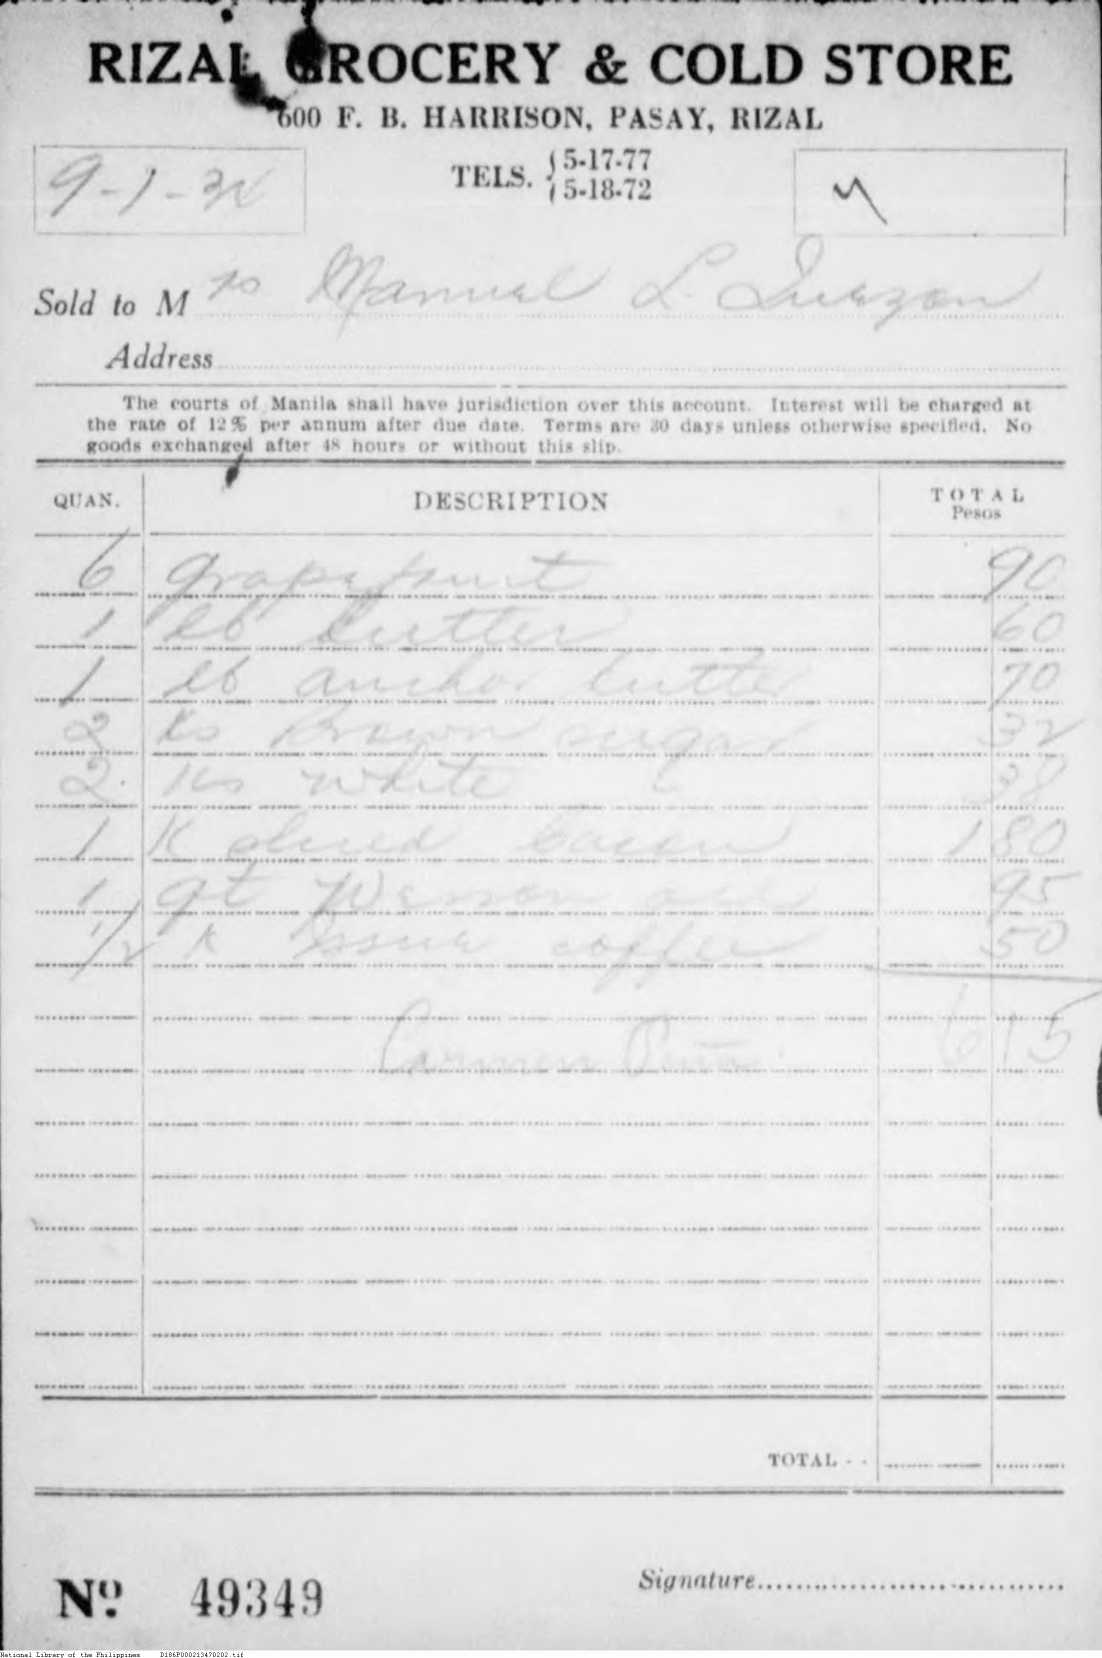 RIZAL GROCERY & COLD STORE
600 F. B. HARRISON, PASAY, RIZAL
TELS. 5-17-77
5-18-72
9-1-32
Sold to Mrs Manuel L. Quezon
Address
The courts of Manila shall have jurisdiction over this account. Interest will be charged at
the rate of 12% per annum after due date. Terms are 30 days unless otherwise specified. No
goods exchanged after 48 hours or without this slip.
QUAN. DESCRIPTION TOTAL
Pesos
6 grapefruit 90
1 lb butter 60
1 lb anchor butter 70
2 ks Brown sugar 32
2 ks white " 38
1 K sliced bacon 1 80
1 qt Wesson oil 95
1/2 K coffee 50
6 15
Carmen Peña
TOTAL - -
No. 49349
Signature
National Library of the Philippines D186P000213470202.tif